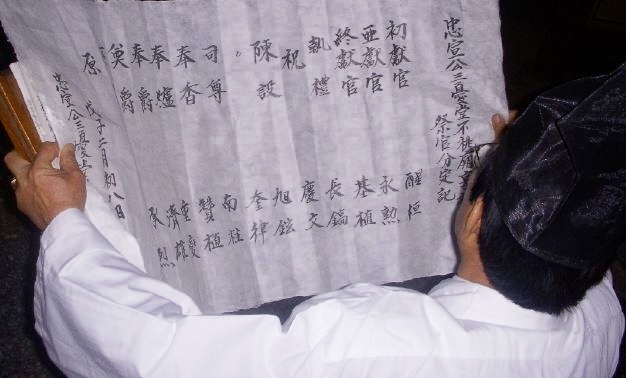 忠宣公三憂堂不祧廟
祭官分定記
初獻官 醒桓
亞獻官 永勳
終獻官 基植
執禮 長鎬
祝 慶文
陳設 旭鉉
。 奎律
司尊 南柱
奉香 贊植
奉爐
奉爵
奠爵 承烈
原
戊子二月初八日
忠宣公三憂堂